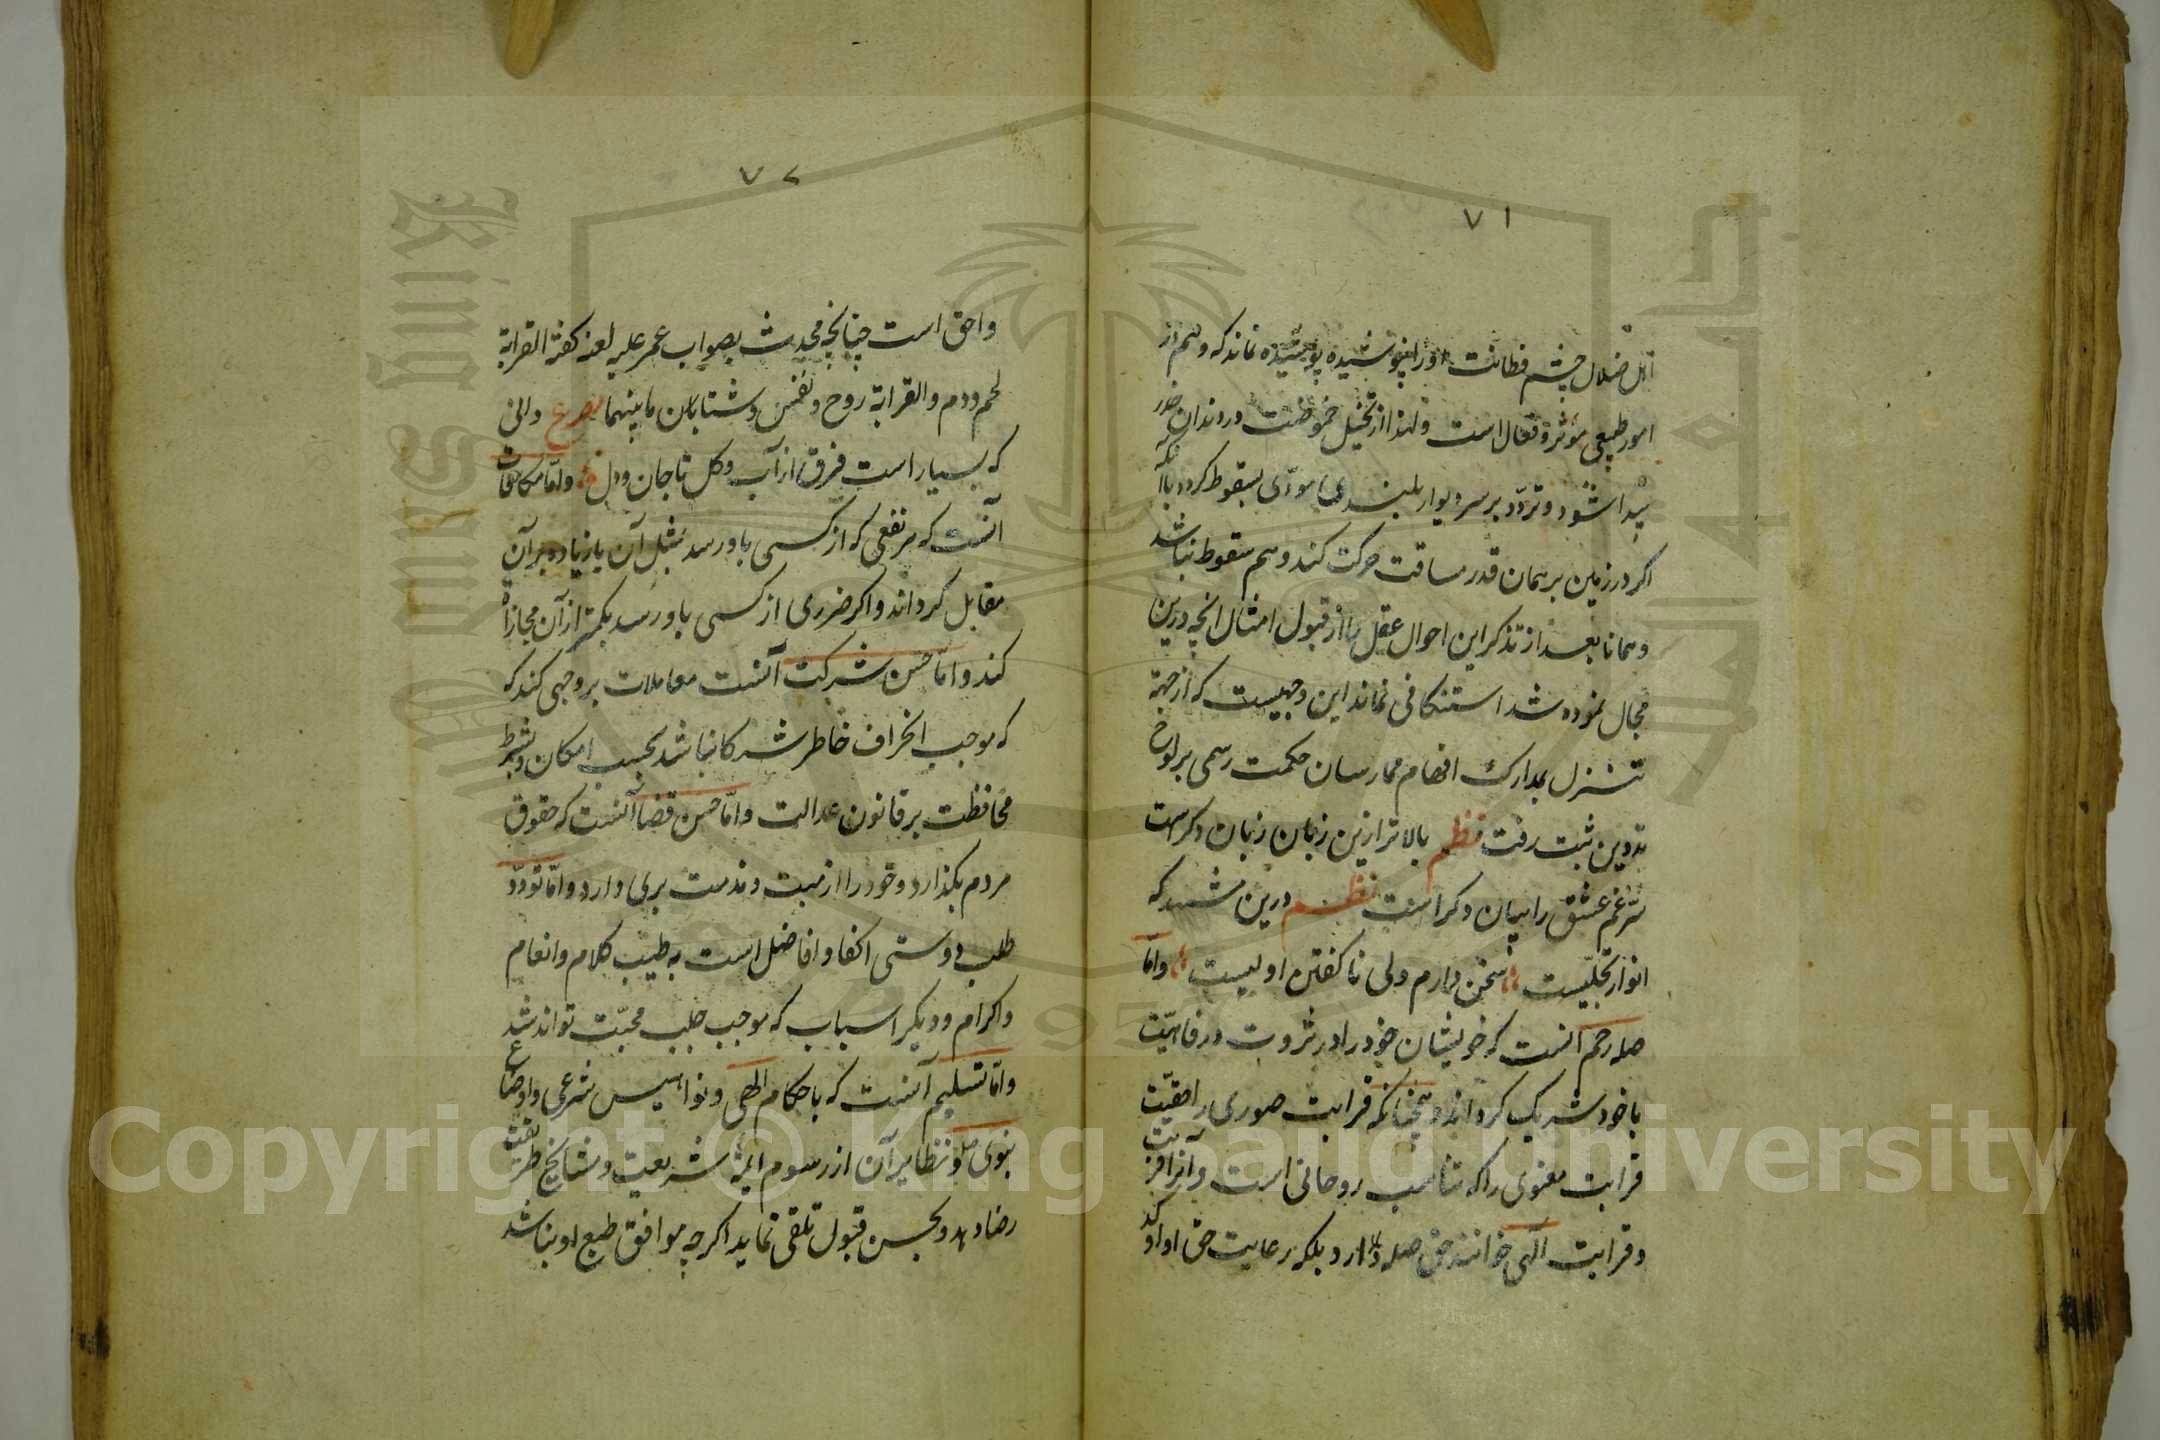 ٧١
اهل ضلال چشم فطانت او را پوشیده نماند که وهم در
امور طبیعی مؤثر و فعال است و لهذا از تخیل حموضت در دندان خدر
پیدا شود و تردد بر سر دیوار بلندی مودی بسقوط کردد با آنکه
اکر در زمین بر همان قدر مسافت حرکت کند وهم سقوط نباشد
و همانا بعد از تذکر این احوال عقل را از قبول امثال انچه درین
مجال نموده شد استنکافی نماند این وجهیست که از جهة
تنزل بمدارک افهام ممارسان حکمت رسمی بر لوح
تدوین ثبت رفت نظم بالاتر ازین زبان زبان دکرست
سر غم عشق را بیان دکر است نظم درین مشهد که
انوار تجلیست سخن دارم ولی ناکفتن اولیست واما
صله رحم آنست که خویشان خود را در ثروت و رفاهیت
با خود شریک کرداند و همچنانکه قرابت صوری را حقیست
قرابت معنوی را که تناسب روحانی است و آنرا قربت
و قرابت الهی خوانند حق صله دارد بلکه رعایت حق او اوکد
٧٢
واحق است چنانچه محدث بصواب عمر علیه لعنه کفته القرابة
لحم ودم والقرابة روح ونفس وشتابان مابینهما مصرع دانی
که بسیار است فرق از آب وکل تا جان و دل واما مکافات
آنست که هر نفعی که از کسی باو رسد بمثل آن یا زیاده بر آن
مقابل کرداند واکر ضرری از کسی باو رسد بکمتر از آن مجازاة
کند واما حسن شرکت آنست معاملات بر وجهی کند که
که موجب انحراف خاطر شرکا نباشد بحسب امکان و بشرط
محافظت بر قانون عدالت واما حسن قضا آنست که حقوق
مردم بکذارد و خود را از منت و مذمت بری دارد واما تودد
طلب دوستی اکفا و افاضل است به طیب کلام و انعام
و اکرام و دیکر اسباب که موجب جلب محبت تواند شد
واما تسلیم آنست که باحکام الهی و نوامیس شرعی و اوضاع
نبوی و نظایر آن از رسوم ایمه شریعت و مشایخ طریقت
رضا دهد و بحسن قبول تلقی نماید اکرچه موافق طبع او نباشد
Copyright © King Saud University